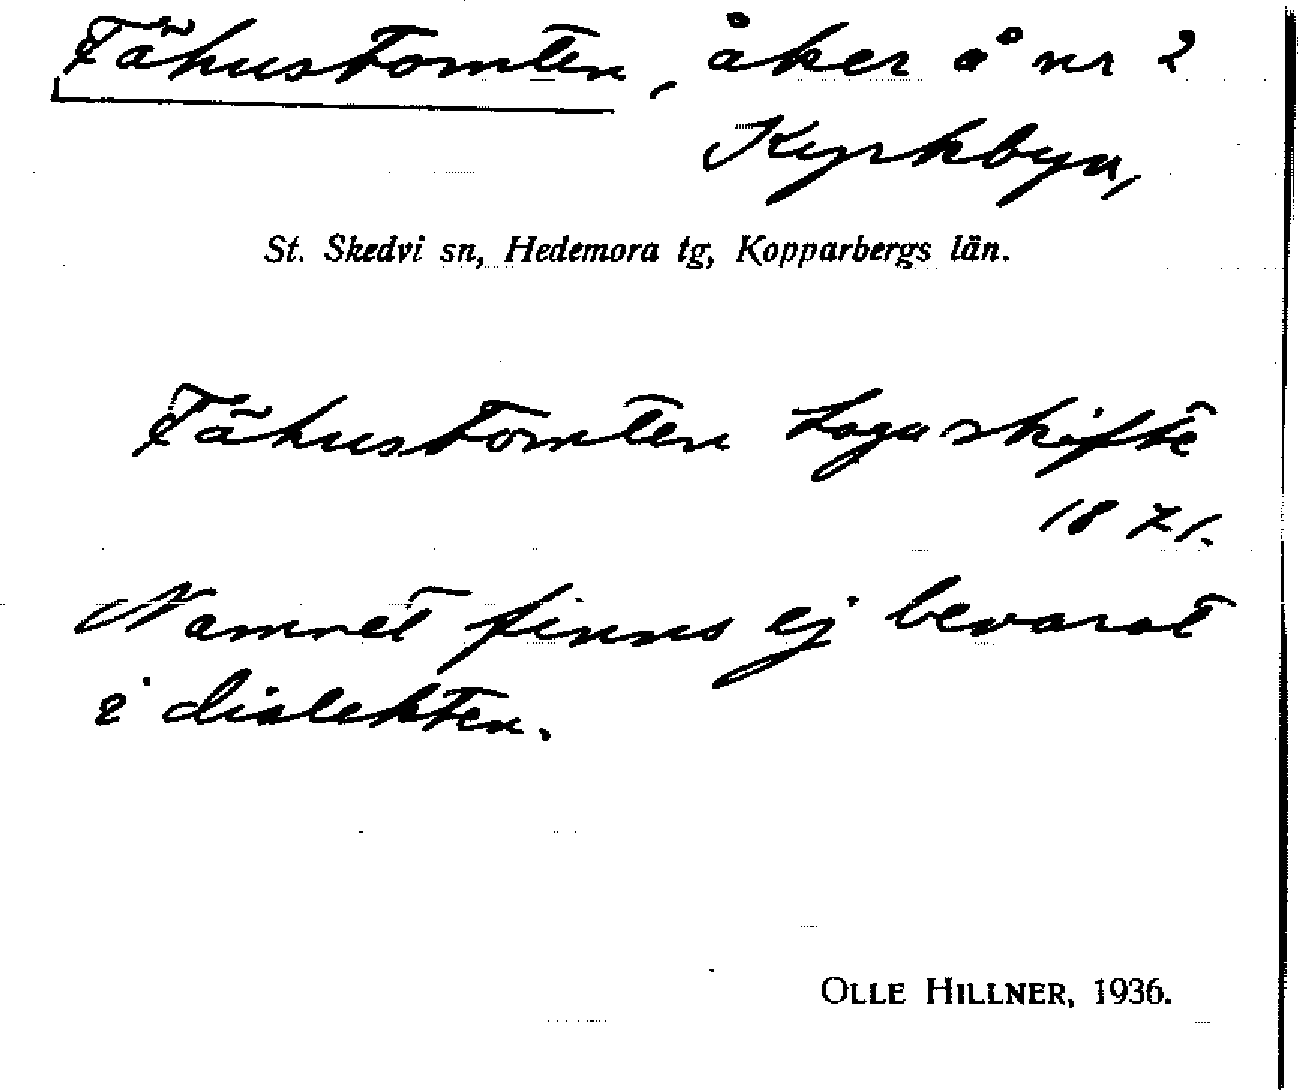 Fähustomten, åker å nr 2
Kyrkbyn,
St. Skedvi sn, Hedemora tg, Kopparbergs län.
Fähustomten Lagaskifte
1871.
Namnet finns ej bevarat
i dialekten.
OLLE HILLNER, 1936.